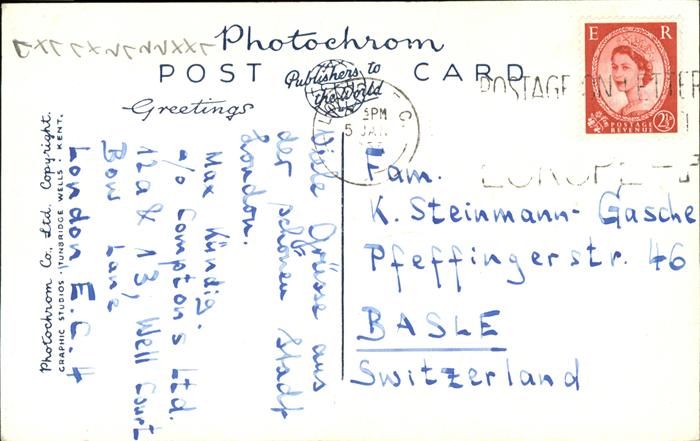 Photochrom
POST CARD
Publishers to
the World
Greetings
E R
POSTAGE
REVENUE
2½
PM
5 JAN
POSTAGE ON LETTER
EUROPE
Photochrom Co., Ltd. Copyright.
GRAPHIC STUDIOS · TUNBRIDGE WELLS · KENT.
Viele Grüsse aus
der schönen Stadt
London.
Max Kündig.
c/o Comptons Ltd.
12a & 13, Well Court
Bow Lane
London E.C.4
Fam.
K. Steinmann-Gasche
Pfeffingerstr. 46
BASLE
Switzerland